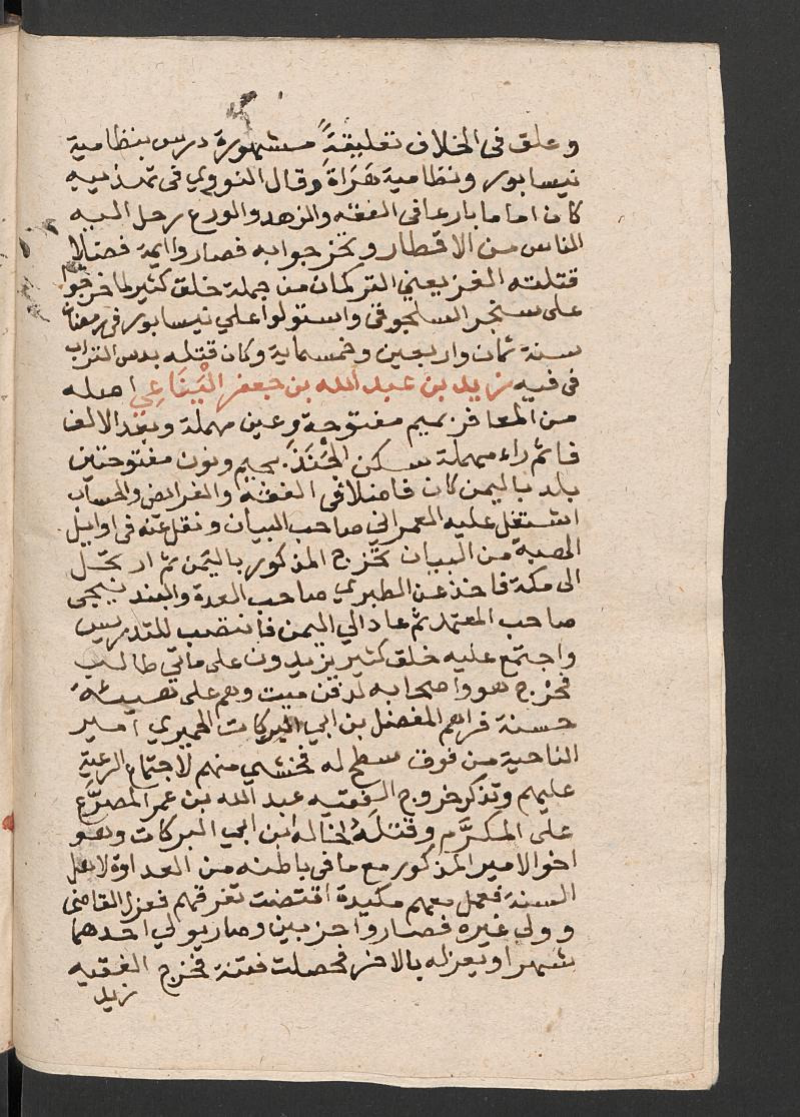 وعلق فى الخلاف تعليقةً مشهورة درس بنظامية
نيسابور ونظامية هَرَاةَ وقال النووي فى تهذيبه
كان اماما بارعا فى الفقه والزهد والورع رحل اليه
الناس من الاقطار وتخرجوا به فصاروا ايمة فضلا
قتلته الغز يعني التركمان من جملة خلق كثير لما خرجوا
على سنجر السلجوقى واستولوا علي نيسابور فى رمضان
سنة ثمان واربعين وخمسماية وكان قتله بدس التراب
فى فيه زيد بن عبد الله بن جعفر اليَفَاعِي اصله
من المعافر بميم مفتوحة وعين مهملة وبعد الالف
فا ثم راء مهملة سكن الجَنَدَ بجيم ونون مفتوحتين
بلد باليمن كان فاضلا فى الفقه والفرائض والحساب
اشتغل عليه العمراني صاحب البيان ونقل عنه فى اوايل
الهبة من البيان تخرج المذكور باليمن ثم ارتحل
الى مكة فاخذ عن الطبري صاحب العدة والبندنيجى
صاحب المعتمد ثم عاد الي اليمن فانتصب للتدريس
واجتمع عليه خلق كثير يزيدون على مائتي طالب
فخرج هو واصحابه لدفن ميت وهم على هيئة
حسنة فراهم المفضل بن ابي البركات الحميري امير
الناحية من فوق سطح له فخشي منهم لاجتماع الرعية
عليهم وتذكر خروج الفقيه عبد الله بن عمر المصرَّع
على المكرَّم وقتلَهُ لخاله ابن ابي البركات وهو
اخو الامير المذكور مع ما فى باطنه من العداوة لاهل
السنة فعمل معهم مكيدة اقتضت تفرقهم فعزل القاضى
وولي غيره فصاروا حزبين وصار يولي احدهما
شهرا ويعزله بالاخر فحصلت فتنة فخرج الفقيه
زيد